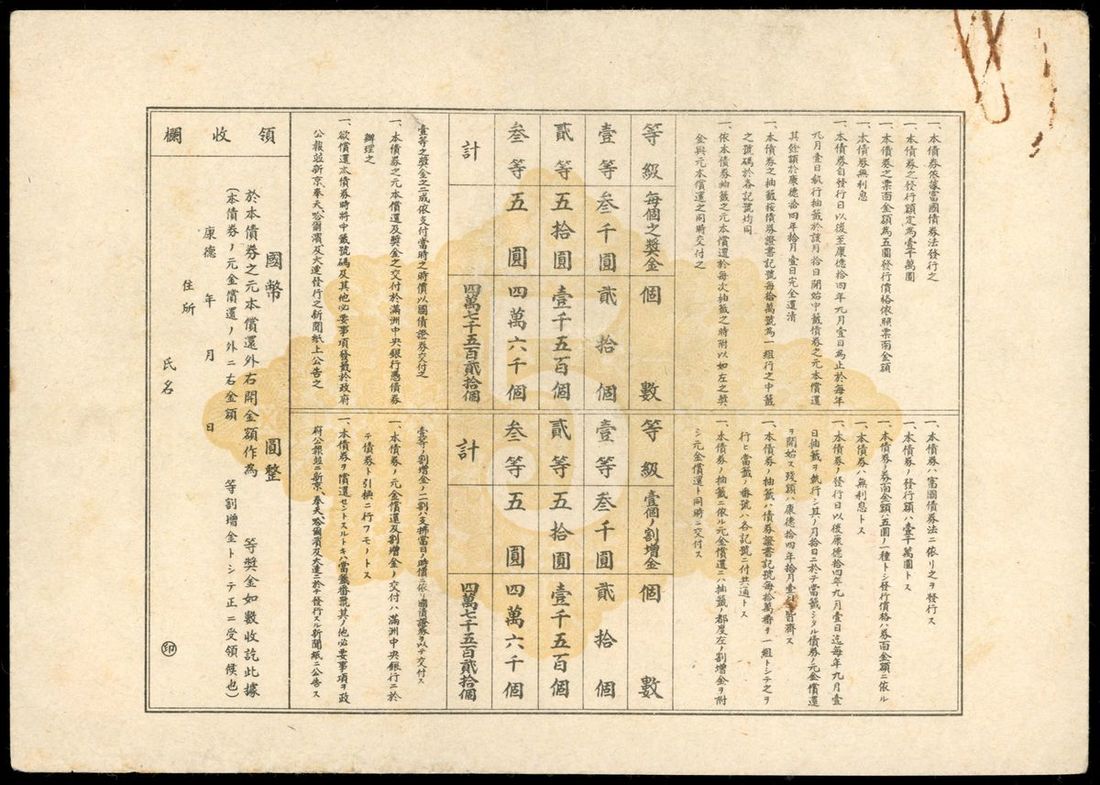 一、本債券依據富國債券法發行之
一、本債券之發行額定為壹千萬圓
一、本債券之票面金額為五圓發行價格依照票面金額
一、本債券無利息
一、本債券自發行日以後至康德拾四年九月壹日為止於每年
九月壹日執行抽籤於該月拾日開始中籤債券之元本償還
其餘額於康德拾四年拾月壹日完全還清
一、本債券之抽籤按債券證書記號每拾萬號為一組行之中籤
之號碼於各記號均同
一、依本債券抽籤之元本償還於每次抽籤之時附以如左之獎
金與元本償還之同時交付之
等級 每個之獎金 個數
壹等 叁千圓 貳拾個
貳等 五拾圓 壹千五百個
叁等 五圓 四萬六千個
計 四萬七千五百貳拾個
壹等之獎金之二成依支付當時之時價以國債證券交付之
一、本債券之元本償還及獎金之交付於滿洲中央銀行憑債券
辦理之
一、欲償還本債券時將中籤號碼及其他必要事項發載於政府
公報並新京、奉天、哈爾濱及大連發行之新聞紙上公告之
一、本債券ハ富國債券法ニ依リ之ヲ發行ス
一、本債券ノ發行額ハ壹千萬圓トス
一、本債券ノ券面金額ハ五圓ノ一種トシ發行價格ハ券面金額ニ依ル
一、本債券ハ無利息トス
一、本債券ノ發行日以後康德拾四年九月壹日迄每年九月壹
日抽籤ヲ執行シ其ノ月拾日ニ於テ當籤シタル債券ノ元金償還
ヲ開始ス殘額ハ康德拾四年拾月壹日皆濟ス
一、本債券ノ抽籤ハ債券證書記號每拾萬番ヲ一組トシテ之ヲ
行ヒ當籤ノ番號ハ各記號ニ付共通トス
一、本債券ノ抽籤ニ依ル元金償還ニハ抽籤ノ都度左ノ割增金ヲ附
シ元金償還ト同時ニ交付ス
等級 壹個ノ割增金 個數
壹等 叁千圓 貳拾個
貳等 五拾圓 壹千五百個
叁等 五圓 四萬六千個
計 四萬七千五百貳拾個
壹等ノ割增金ノ二割ハ支拂當日ノ時價ニ依リ國債證券ヲ以テ交付ス
一、本債券ノ元金償還及割增金ノ交付ハ滿洲中央銀行ニ於
テ債券ト引換ニ行フモノトス
一、本債券ヲ償還セントスルトキハ當籤番號其ノ他必要事項ヲ政
府公報並ニ新京、奉天、哈爾濱及大連ニ於テ發行スル新聞紙ニ公告ス
領收欄
國幣 圓整
於本債券之元本償還外右開金額作為 等獎金如數收訖此據
(本債券ノ元金償還ノ外ニ右金額 等割增金トシテ正ニ受領候也)
康德 年 月 日
住所
氏名
印